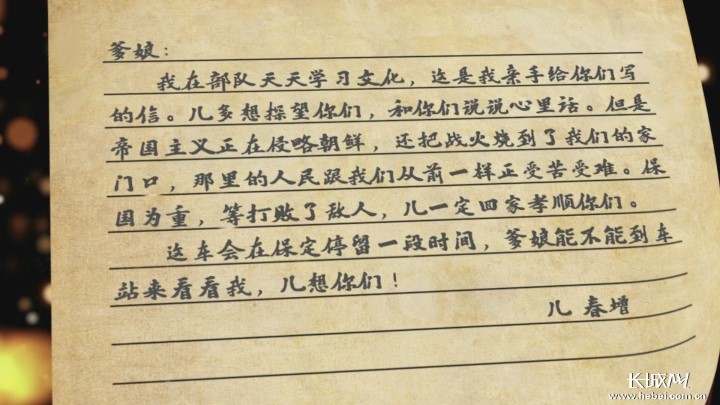 爹娘：
我在部队天天学习文化，这是我亲手给你们写
的信。儿多想探望你们，和你们说说心里话。但是
帝国主义正在侵略朝鲜，还把战火烧到了我们的家
门口，那里的人民跟我们从前一样正受苦受难。保
国为重，等打败了敌人，儿一定回家孝顺你们。
这车会在保定停留一段时间，爹娘能不能到车
站来看看我，儿想你们！
儿 春增
长城网
www.hebei.com.cn